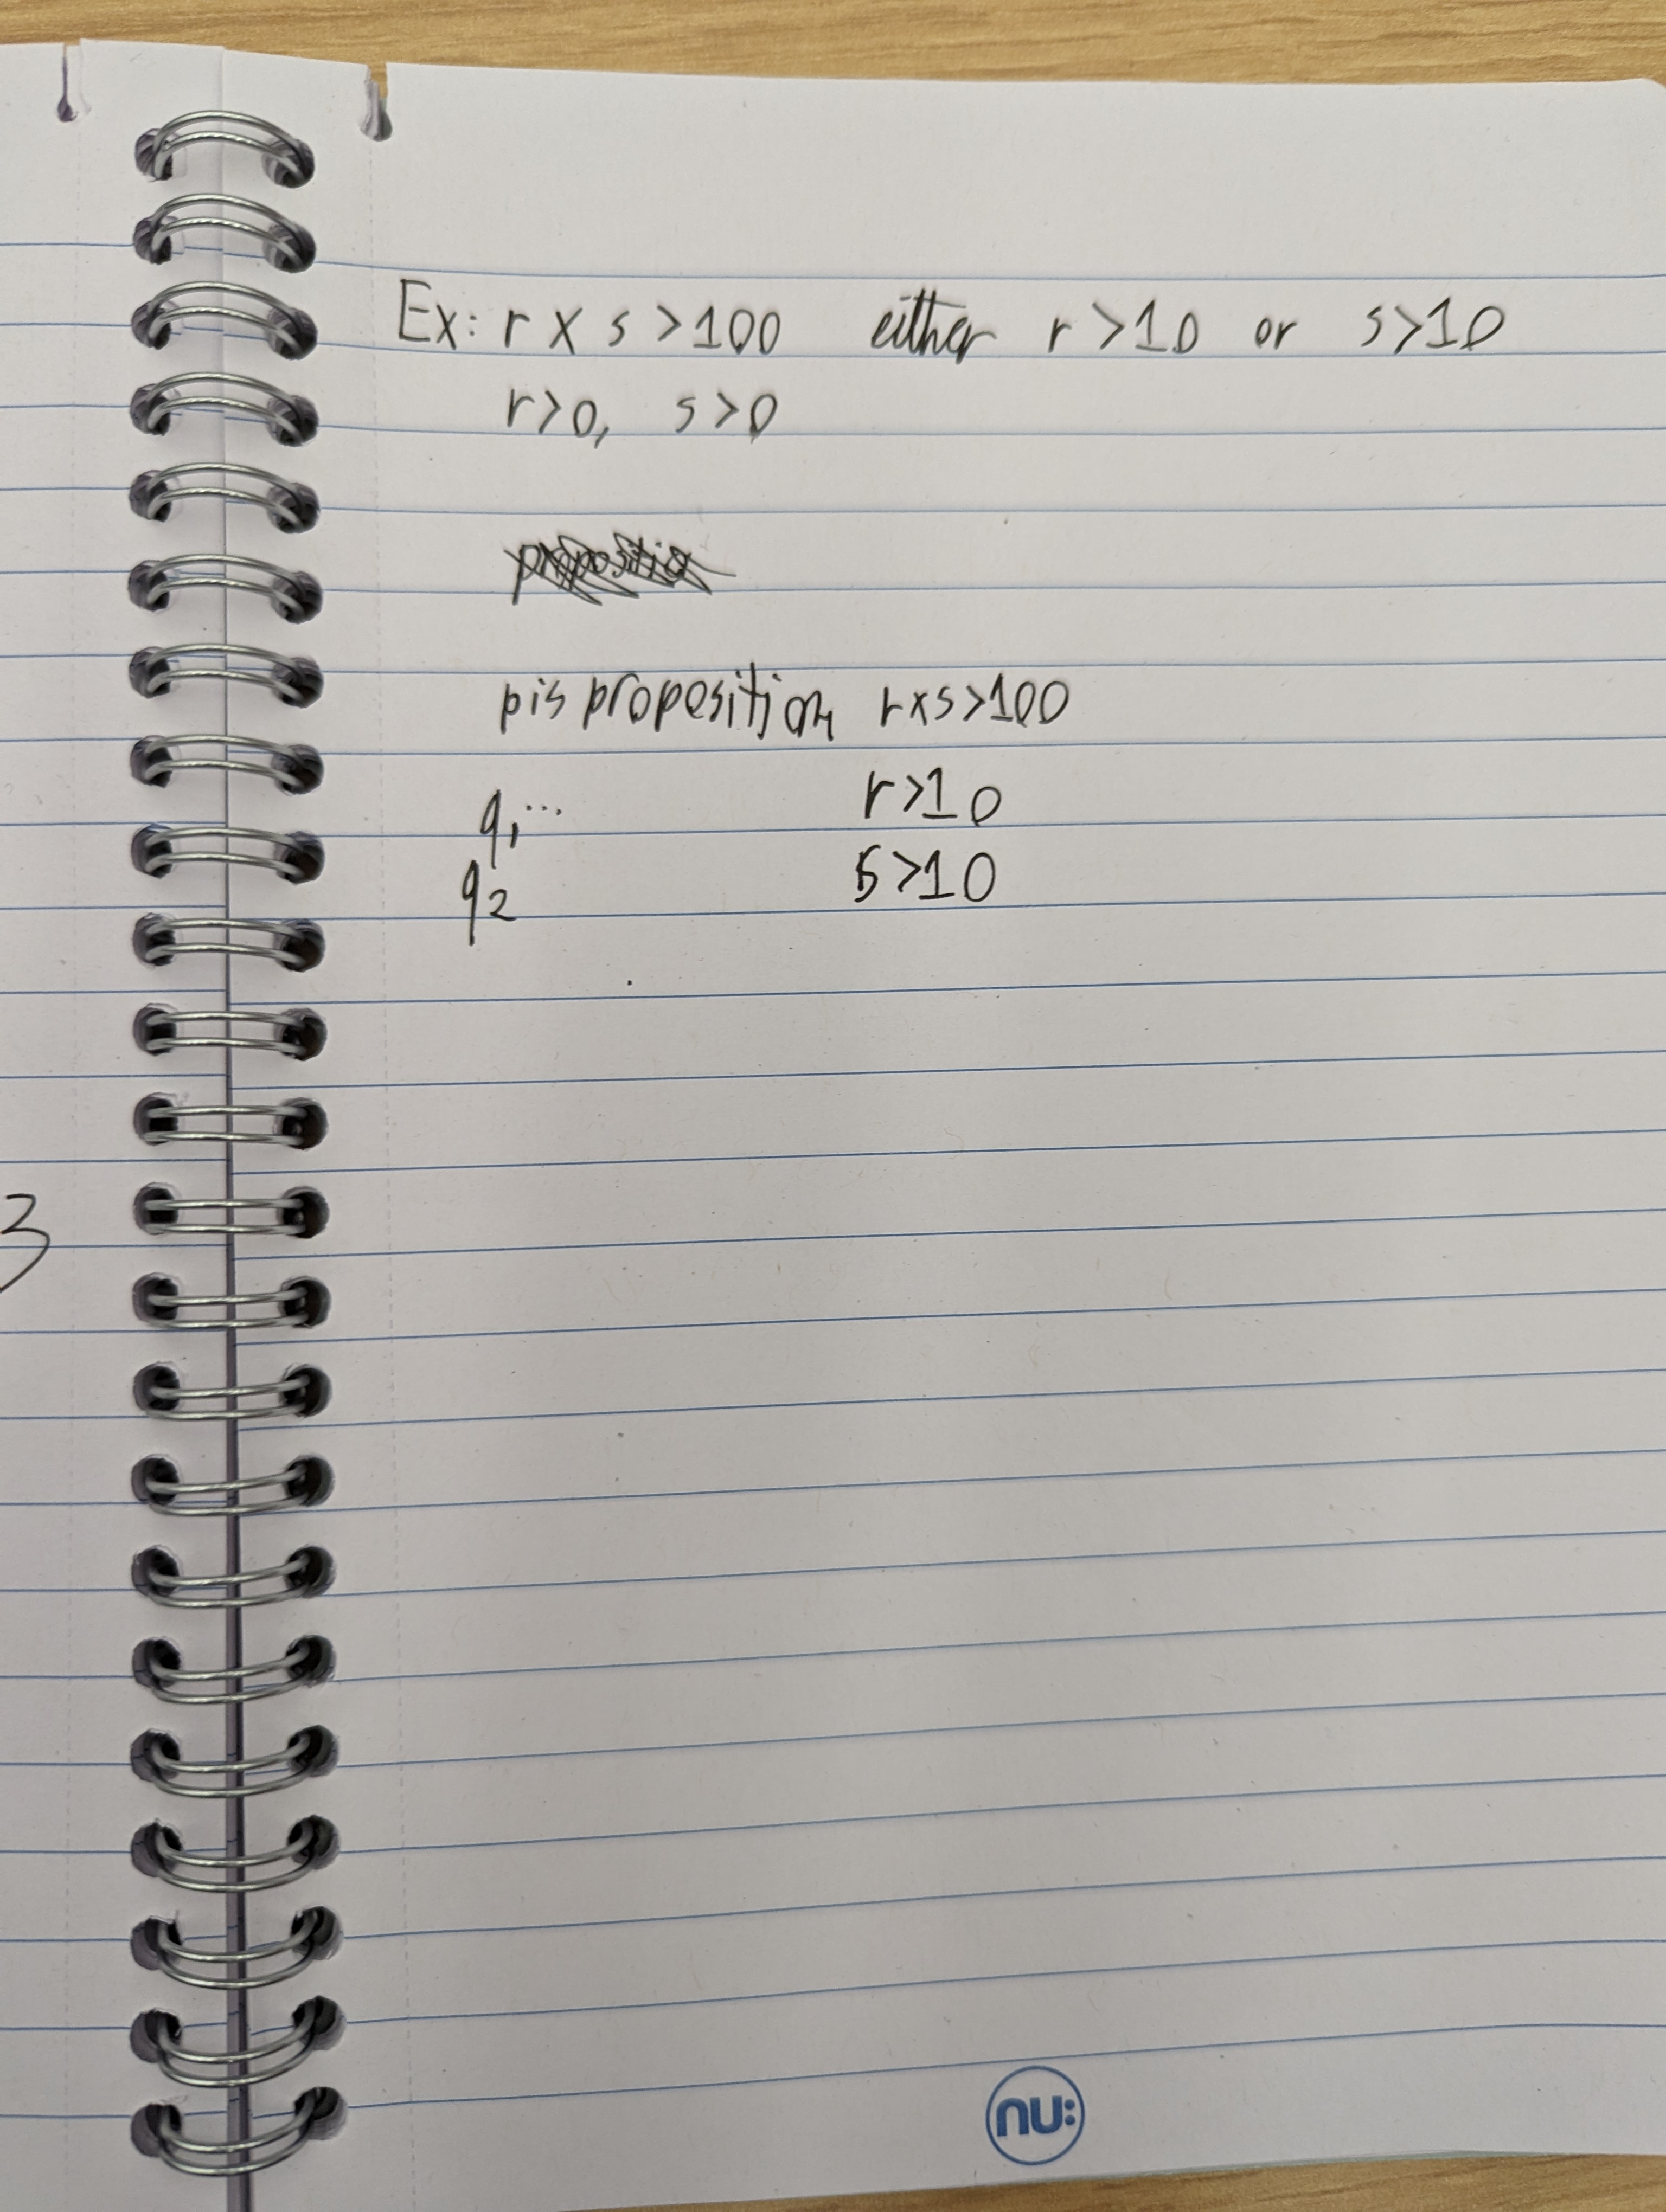 Ex: r x s >100 either r >10 or s>10
r>0, s>0
pis proposition r x s >100
q₁... r>10
q₂ s>10
3
nu: